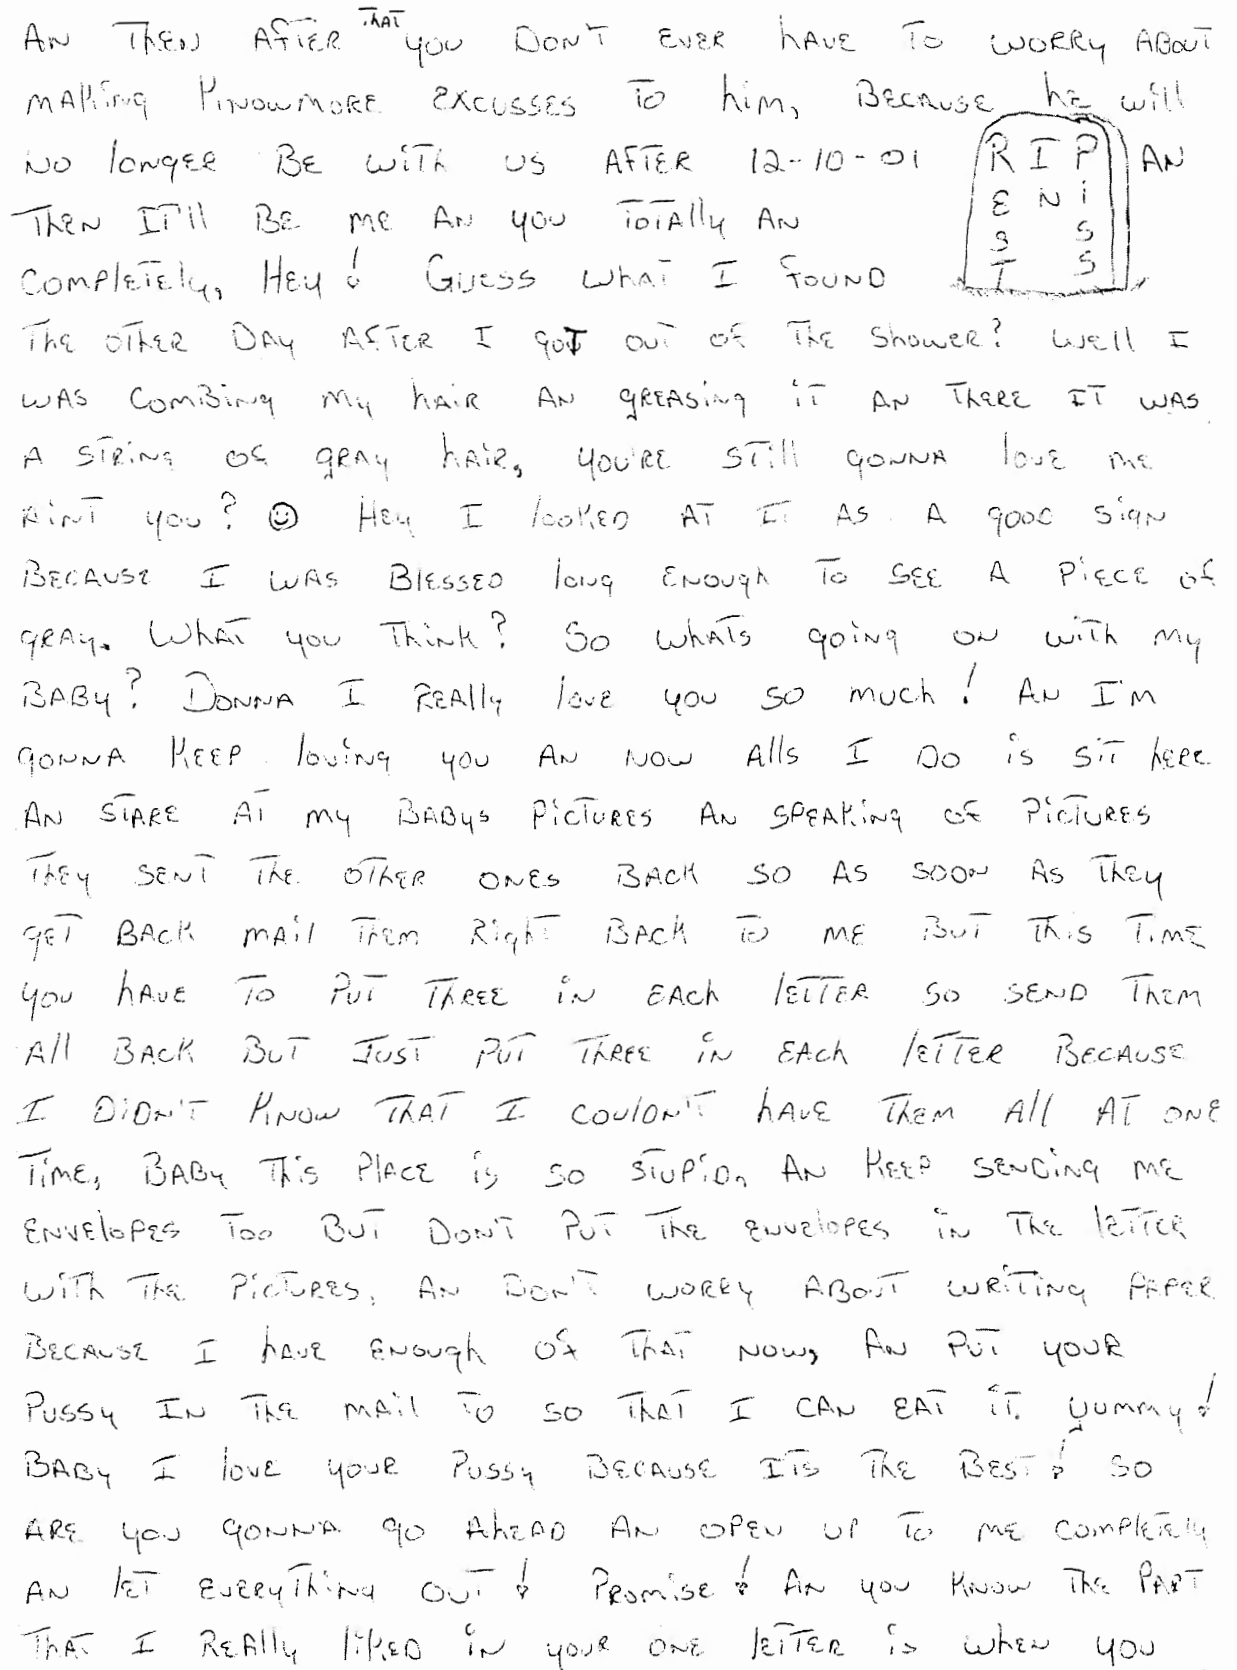 AN THEN AFTER THAT YOU DON'T EVER HAVE TO WORRY ABOUT
MAKING KNOWMORE EXCUSSES TO him, BECAUSE hE will
NO longER BE with US AFTER 12-10-01 AN
THEN IT'll BE ME AN YOU TOTAlly AN
COMPlETEly, HEY! GUESS WhAT I FOUND
R I P
E N i
S S
T S
ThE OThER DAY AFTER I goT OUT OF ThE ShOWER? WEll I
WAS COMBING MY hAIR AN gREASing iT AN ThERE IT WAS
A STRiNg OF gRAY hAIR, YOU'RE STill gONNA lOVE ME
AiNT YOU? ☺ HEY I lOOKED AT IT AS A gOOD SigN
BECAUSE I WAS BlESSED lONg ENOUgh TO SEE A PiECE OF
gRAY. WhAT YOU ThiNK? SO WhATS gOiNg ON WiTh MY
BABY? DONNA I REAlly lOVE YOU SO MUCh! AN I'M
gONNA KEEP lOViNg YOU AN NOW Alls I DO iS SiT hERE
AN STARE AT MY BABYS PiCTURES AN SPEAKiNg OF PiCTURES
ThEY SENT ThE OThER ONES BACK SO AS SOON AS ThEY
gET BACK MAil ThEM RighT BACK TO ME BUT ThiS TiME
YOU hAVE TO PUT ThREE iN EACh lETTER SO SEND ThEM
All BACK BUT JUST PUT ThREE iN EACh lETTER BECAUSE
I DiDN'T KNOW ThAT I COUlDN'T hAVE ThEM All AT ONE
TiME, BABY ThiS PlACE iS SO STUPiD, AN KEEP SENDiNg ME
ENVElOPES TOO BUT DON'T PUT ThE ENVElOPES iN ThE lETTER
WiTh ThE PiCTURES, AN DON'T WORRY ABOUT WRiTiNg PAPER
BECAUSE I hAVE ENOUgh OF ThAT NOW, AN PUT YOUR
PUSSY IN ThE MAil TO SO ThAT I CAN EAT iT. YUMMY!
BABY I lOVE YOUR PUSSY BECAUSE ITS ThE BEST! SO
ARE YOU gONNA gO AhEAD AN OPEN UP TO ME COMPlETEly
AN lET EVERYThiNg OUT! PROMiSE! AN YOU KNOW ThE PART
ThAT I REAlly liKED iN YOUR ONE lETTER iS WhEN YOU